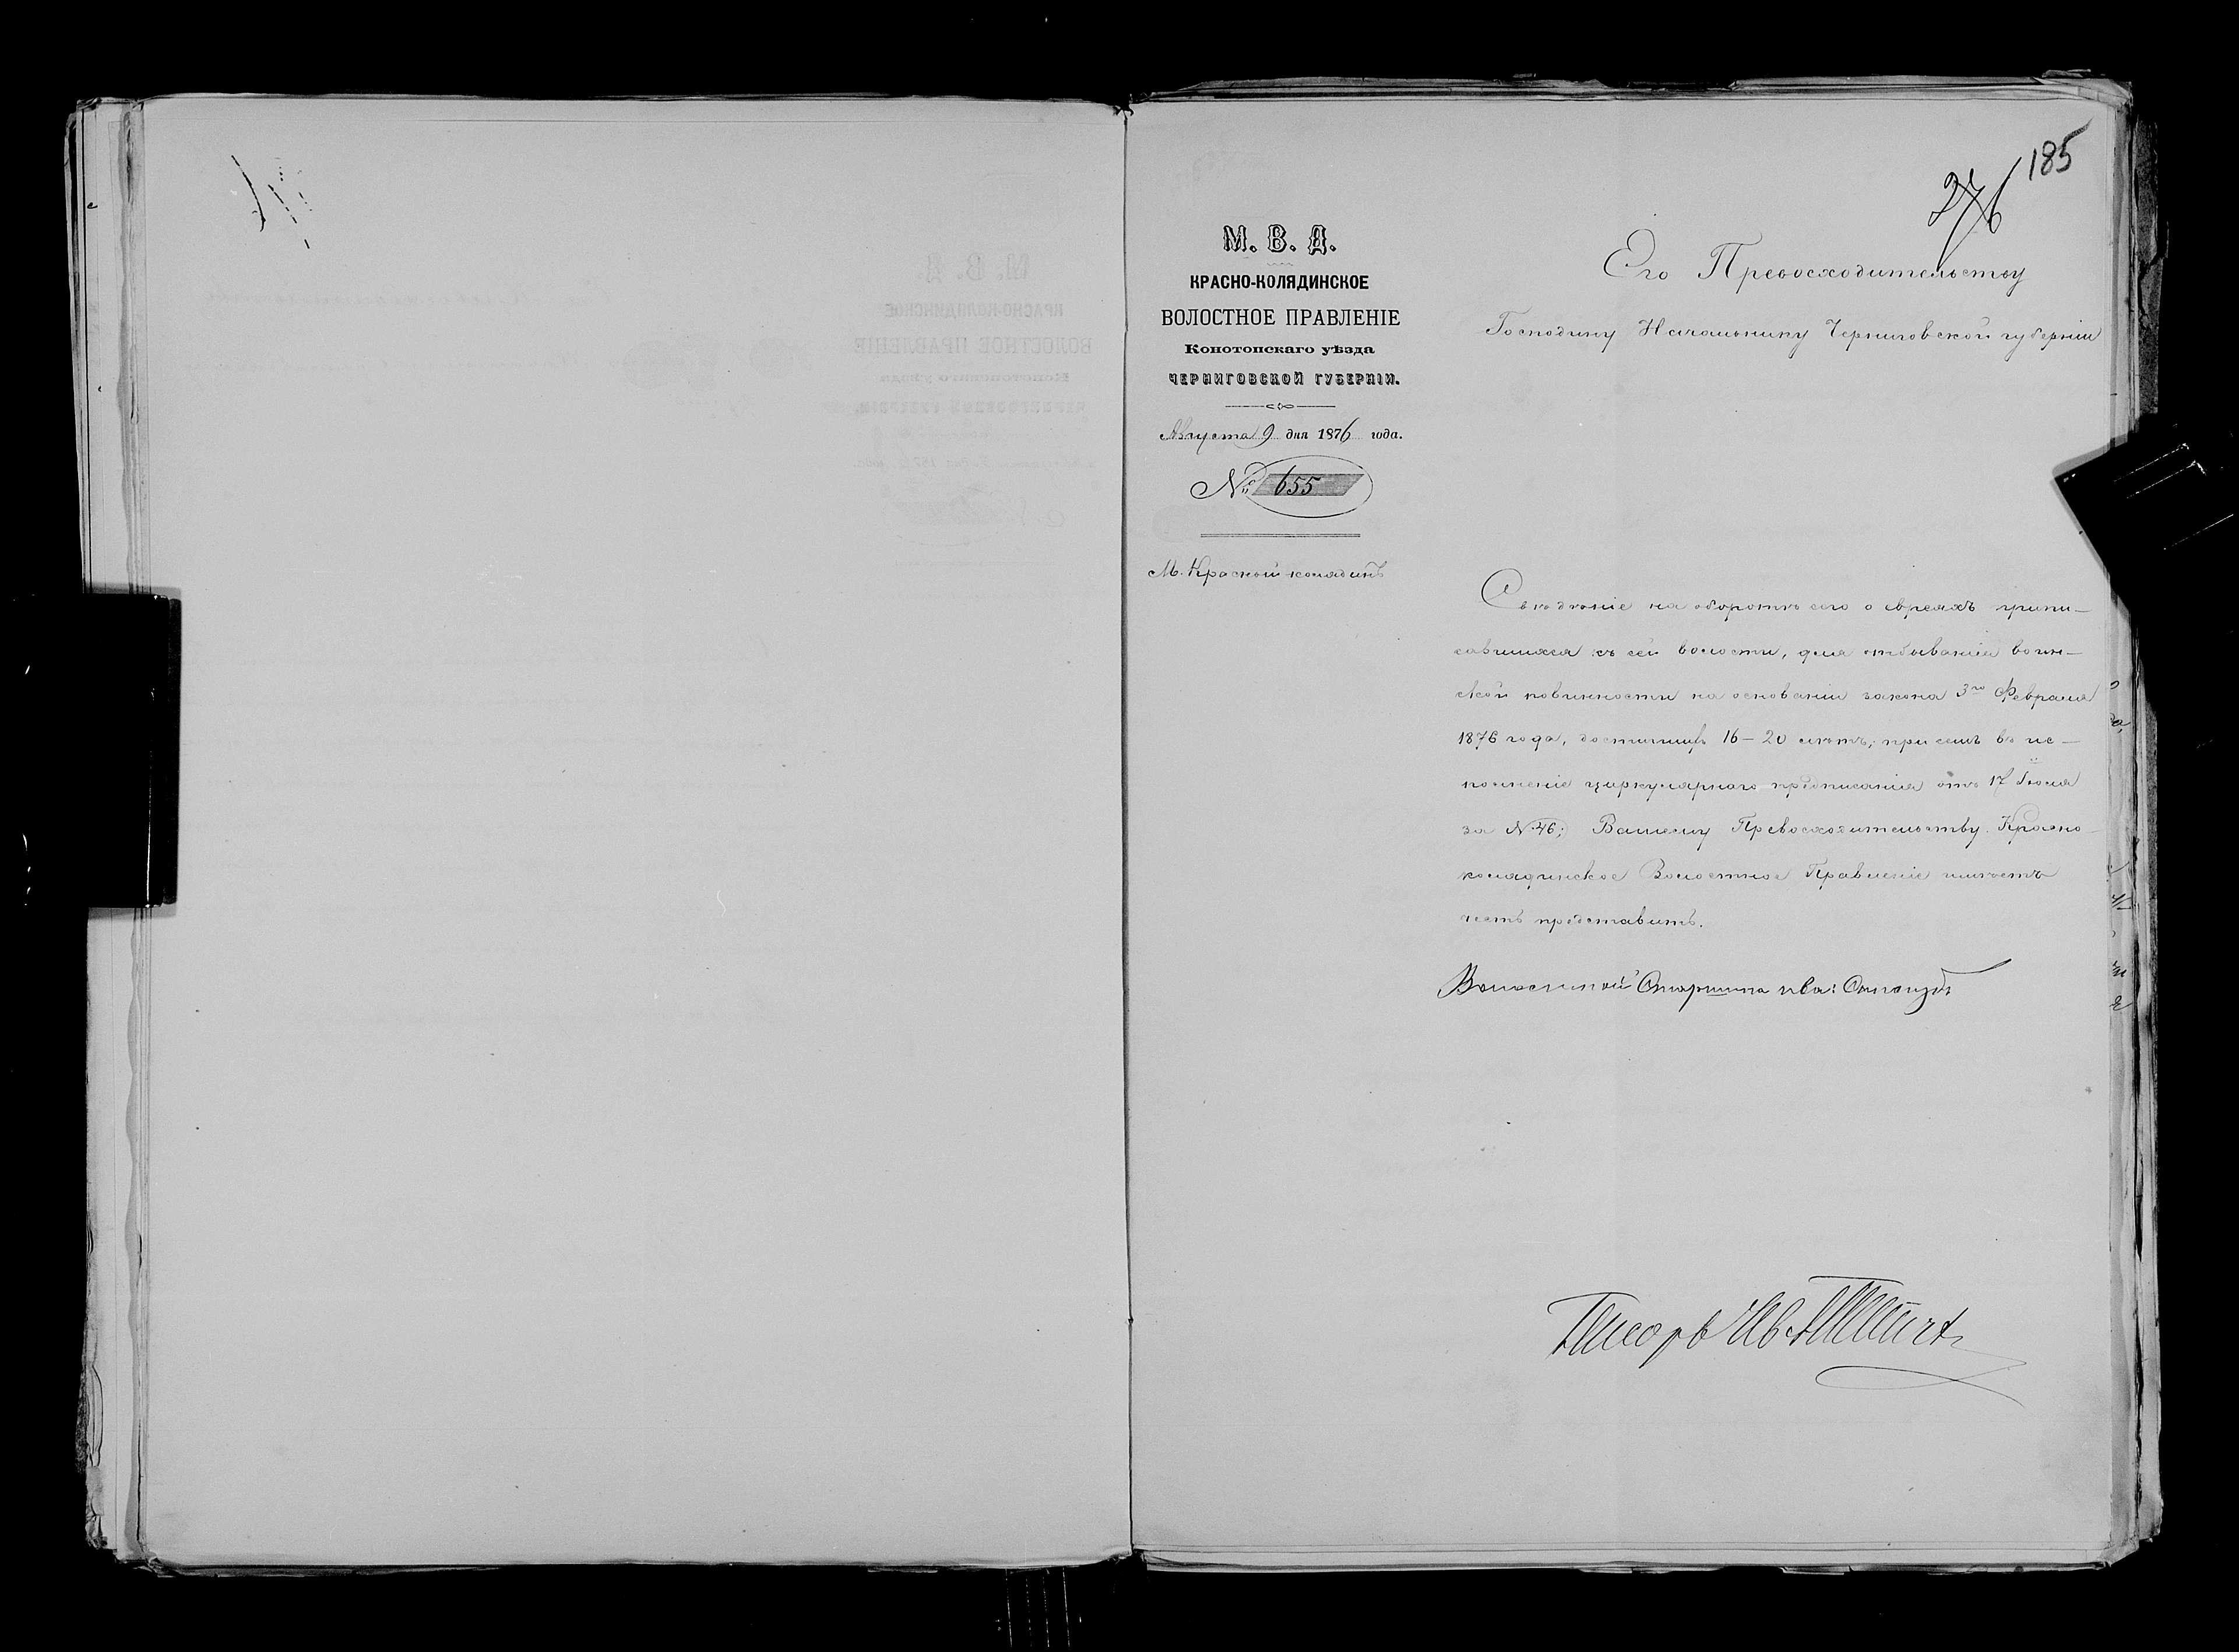 185
276
М. В. Д.
КРАСНО-КОЛЯДИНСКОЕ
ВОЛОСТНОЕ ПРАВЛЕНІЕ
Конотопскаго уѣзда
ЧЕРНИГОВСКОЙ ГУБЕРНІИ.
Августа 9 дня 1876 года.
№ 655
М. Красный колядинъ
Его Превосходительству
Господину Начальнику Черниговской губерніи
Свѣдѣніе на оборотѣ сего о евреяхъ припи-
савшихся къ сей волости, для отбыванія воин-
ской повинности на основаніи закона 3го Февраля
1876 года, достигшихъ 16-20 лѣтъ, при семъ во ис-
полненіе циркулярнаго предписанія отъ 17 Іюля
за № 46; Вашему Превосходительству Красно
колядинское Волостное Правленіе имѣетъ
честь представить.
Волостной Старшина Ива:
Писарь Ив